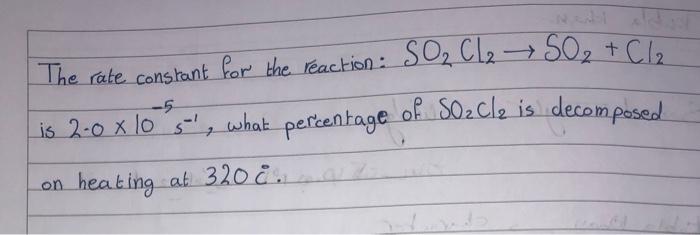 The rate constant for the reaction: SO₂Cl₂ → SO₂ + Cl₂
is 2.0 × 10⁻⁵ s⁻¹, what percentage of SO₂Cl₂ is decomposed
on heating at 320 C̊.